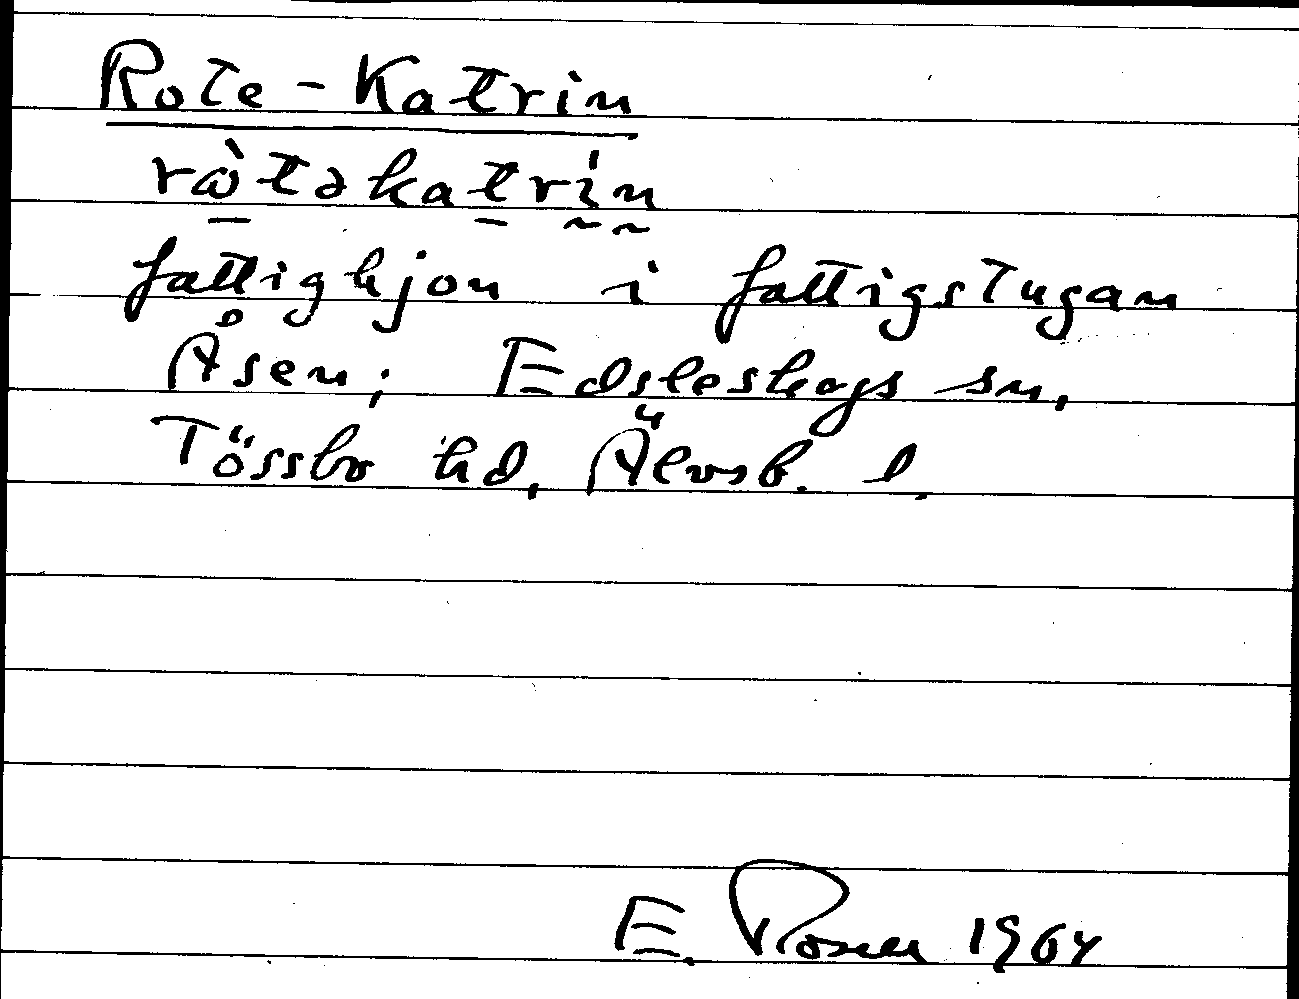 Rote-Katrin
ròtəkatrín
fattighjon i fattigstugan
Åsen; Edsleskogs sn,
Tössbo hd, Älvsb. l.
E. Rosen 1964